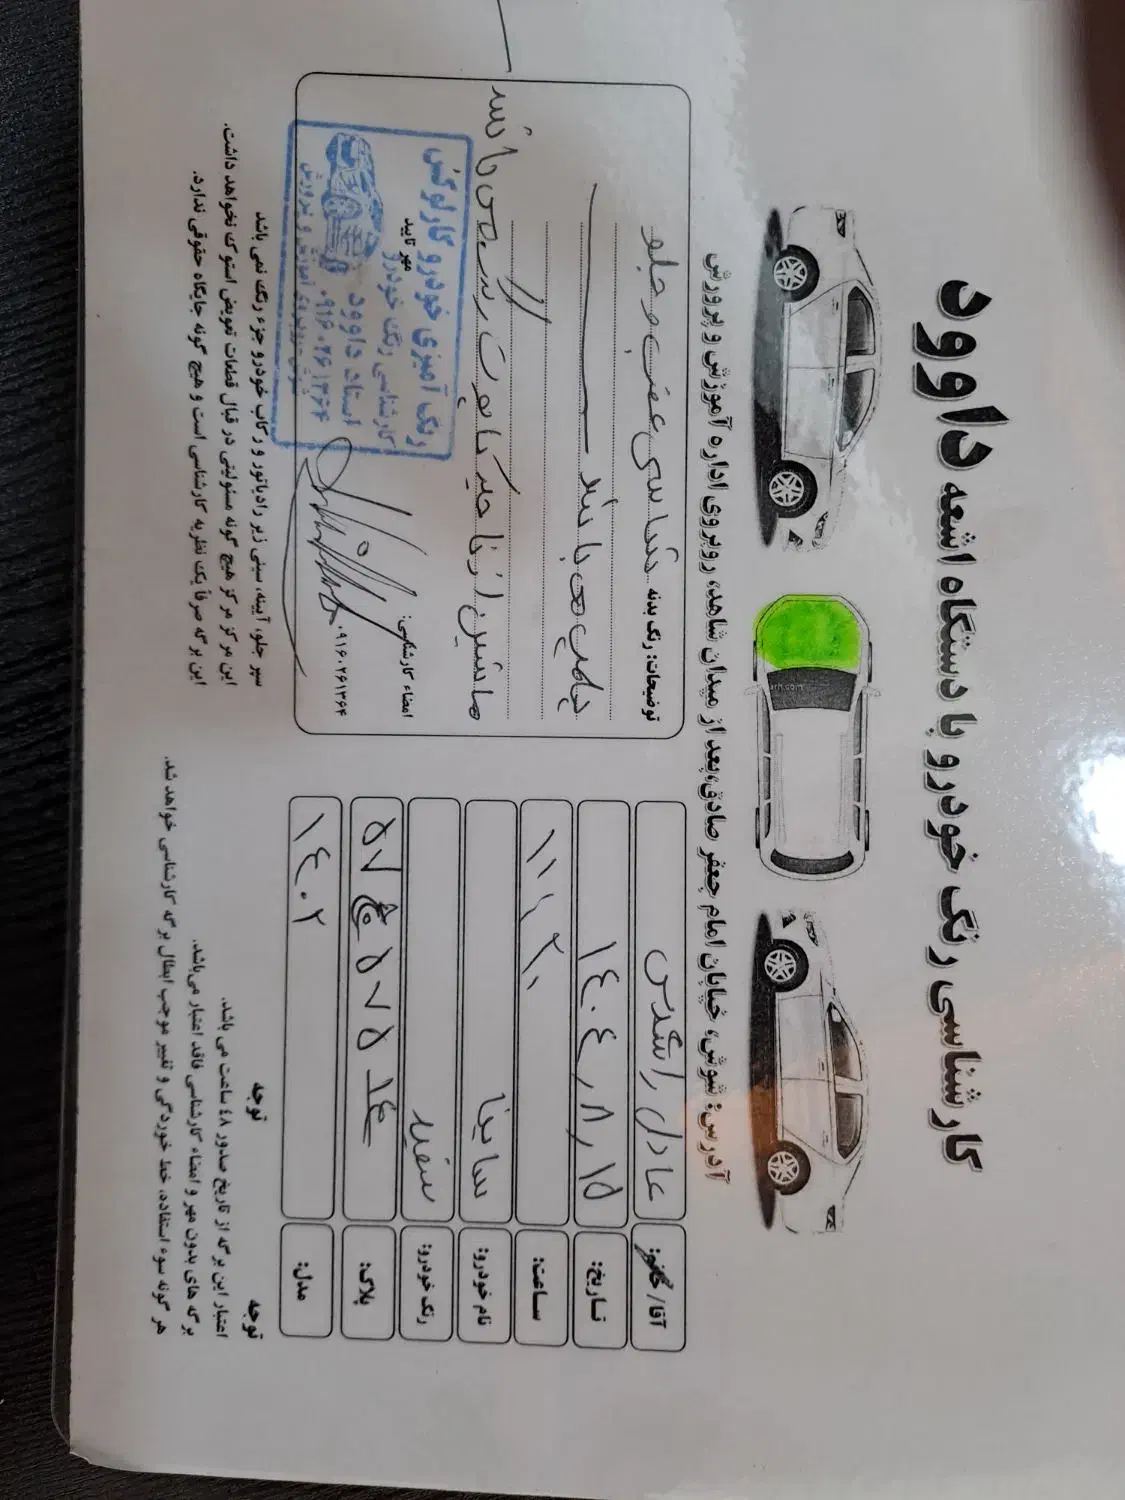 کارشناسی رنگ خودرو با دستگاه اشعه داوود
آدرس: شوش، خیابان امام جعفر صادق، بعد از میدان شاهد، روبروی اداره آموزش و پرورش
آقا/خانم: عادل راشدی
تاریخ: ۱۴۰۴/۸/۱۵
ساعت: ۱۱/۲۰
نام خودرو: ساینا
رنگ خودرو: سفید
پلاک:
مدل: ۱۴۰۲
توضیحات: رنگ بدنه شاسی عقب و جلو
پلمپ می باشد
ماشین از ناحیه کاپوت رنگ می باشد
امضاء کارشناسی:
۰۹۱۶۰۲۶۱۳۶۴
مهر تایید
رنگ آمیزی خودرو
کارشناسی رنگ خودرو
استاد داوود
۰۹۱۶۰۲۶۱۳۶۴
سپر جلو، آیینه، سینی زیر رادیاتور و رکاب خودرو جزء رنگ نمی باشد
این مرکز هیچ گونه مسئولیتی در قبال قطعات تعویض استوک نخواهد داشت.
این برگه صرفا یک نظریه کارشناسی است و هیچ گونه جایگاه حقوقی ندارد.
توجه توجه
اعتبار این برگه از تاریخ صدور ۴۸ ساعت می باشد.
برگه های بدون مهر و امضاء کارشناسی فاقد اعتبار می‌باشد.
هر گونه سوء استفاده، خط خوردگی و تغییر موجب ابطال برگه کارشناسی خواهد شد.